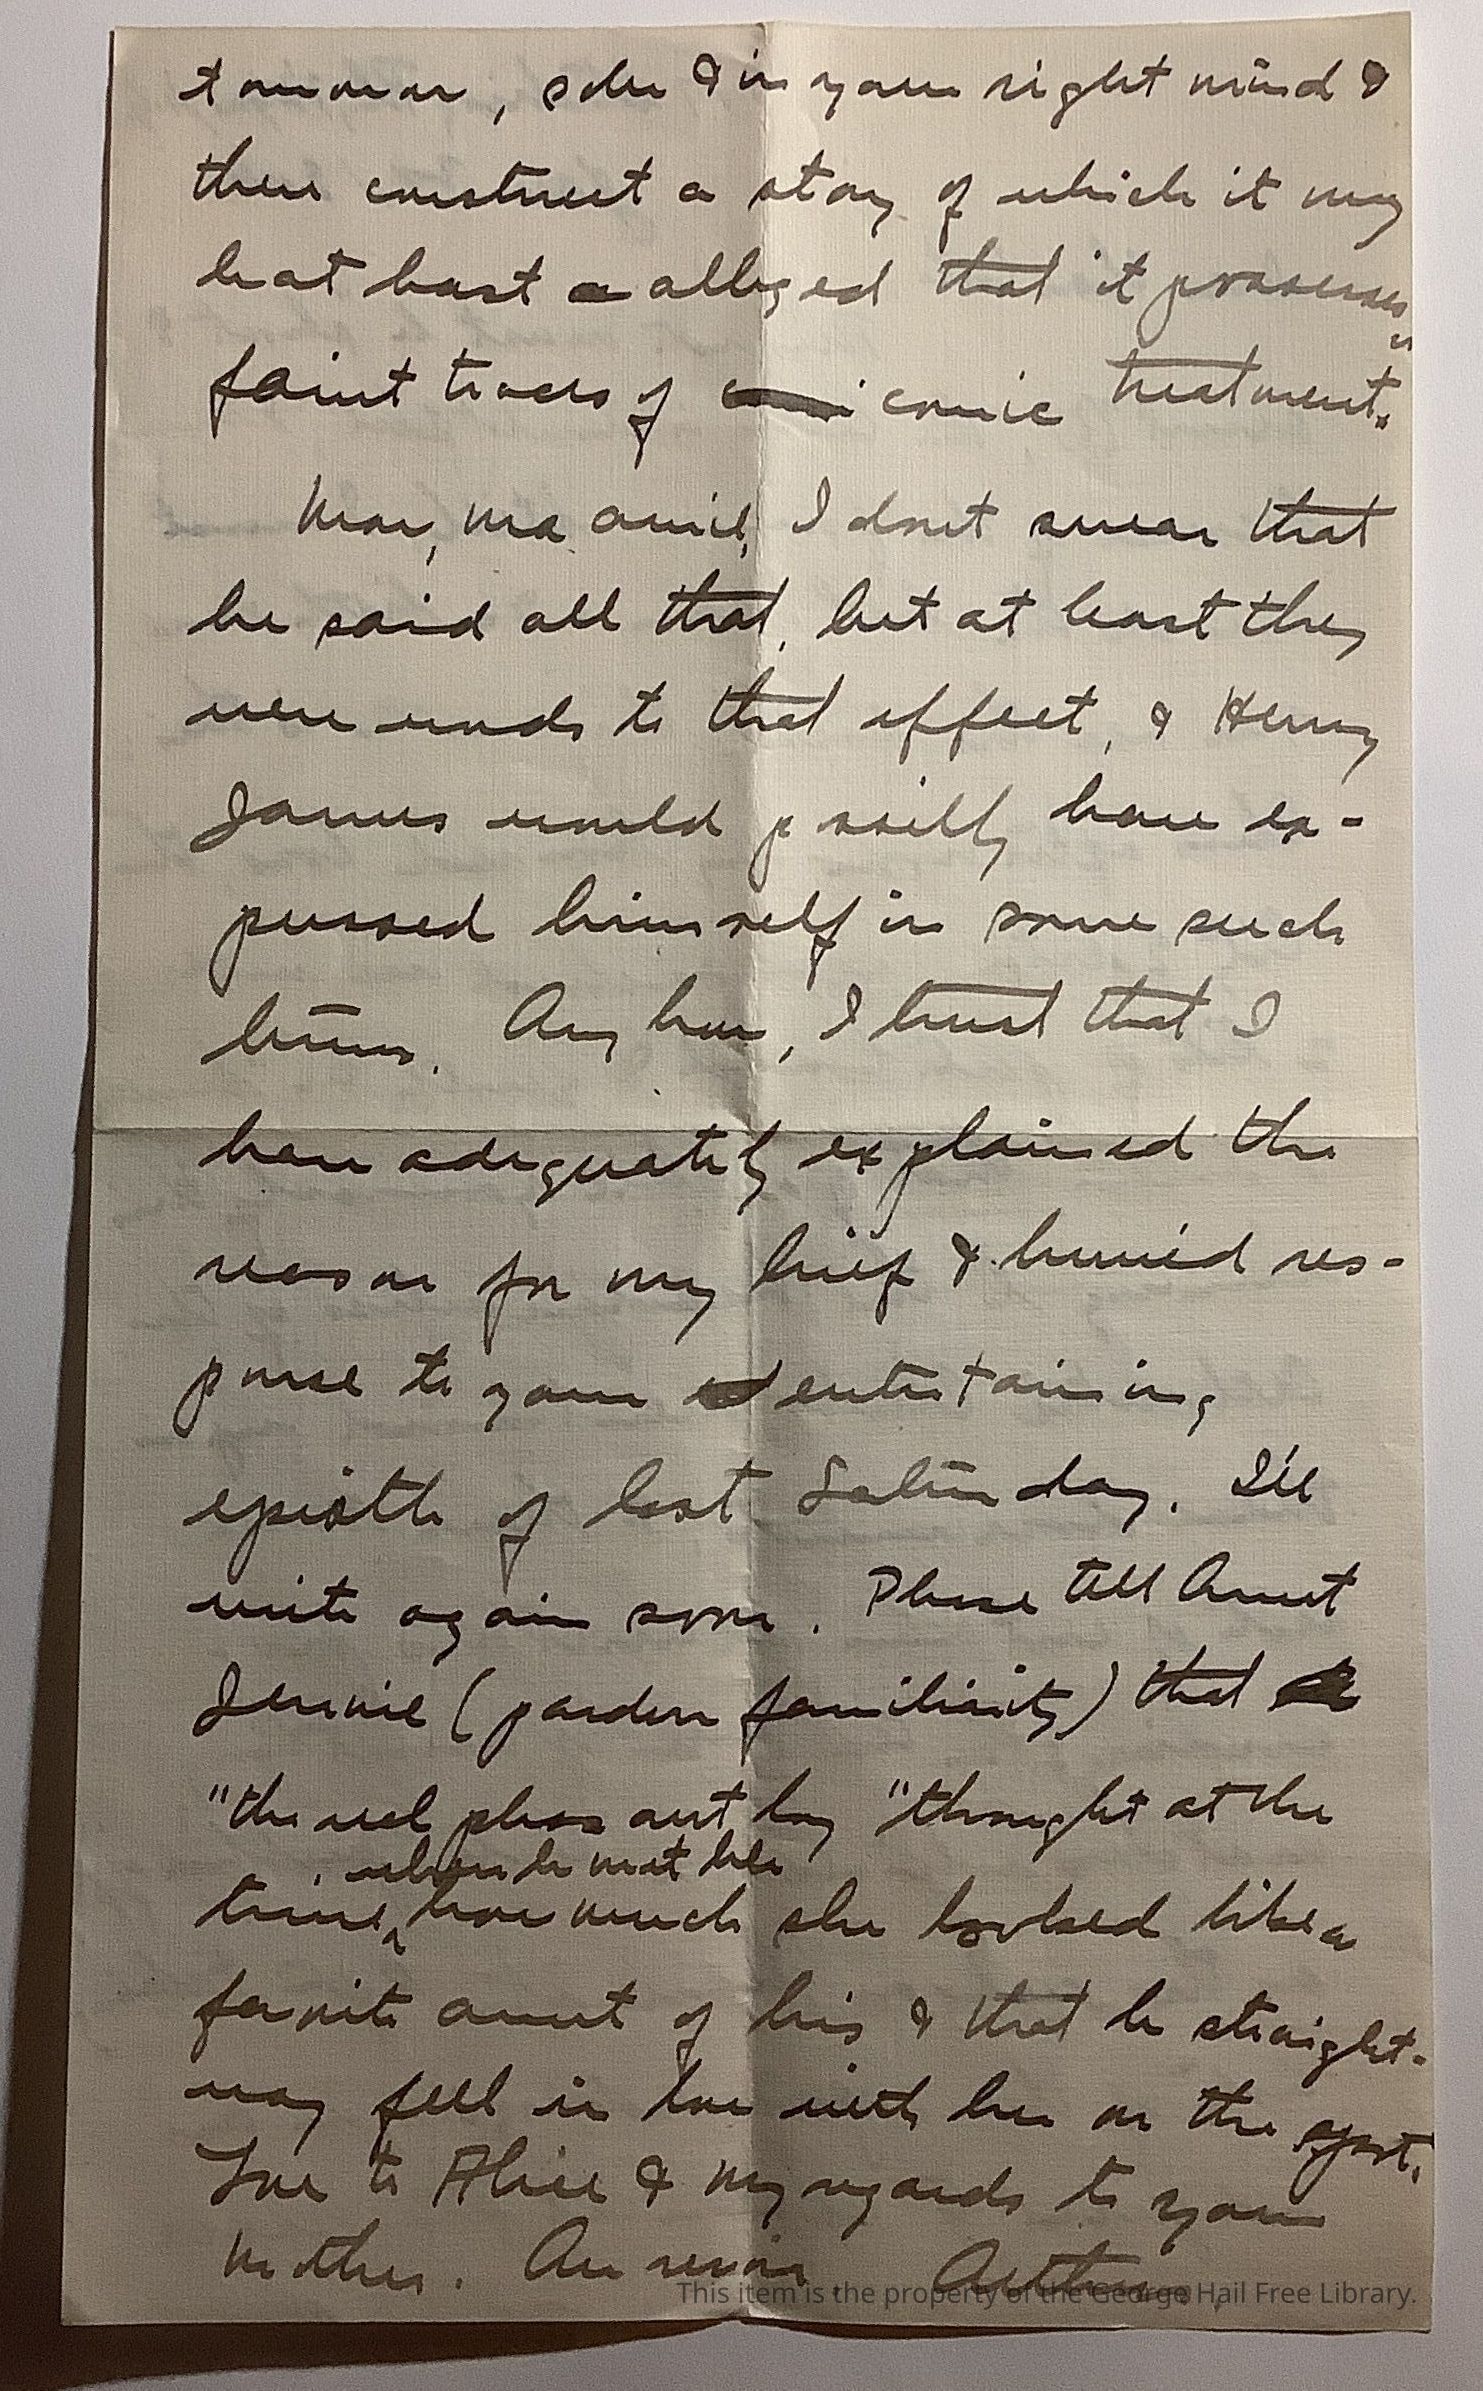 tomorrow, sober & in your right mind &
there construct a story of which it may
be at least alleged that it possesses
faint traces of comic treatment."
Now, ma amie, I don't swear that
he said all that, but at least they
were words to that effect, & Henry
James would possibly have ex-
pressed himself in some such
terms. Any how, I trust that I
have adequately explained the
reason for my brief & hurried res-
ponse to your entertaining
epistle of last Saturday. I'll
write again soon. Please tell Aunt
Jennie (pardon familiarity) that
"the real pleasant boy" thought at the
, when he met her
time, how much she looked like a
favorite aunt of his & that he straight-
way fell in love with her on the spot.
Love to Alice & my regards to your
mother. Au revoir Arthur.
This item is the property of the George Hail Free Library.